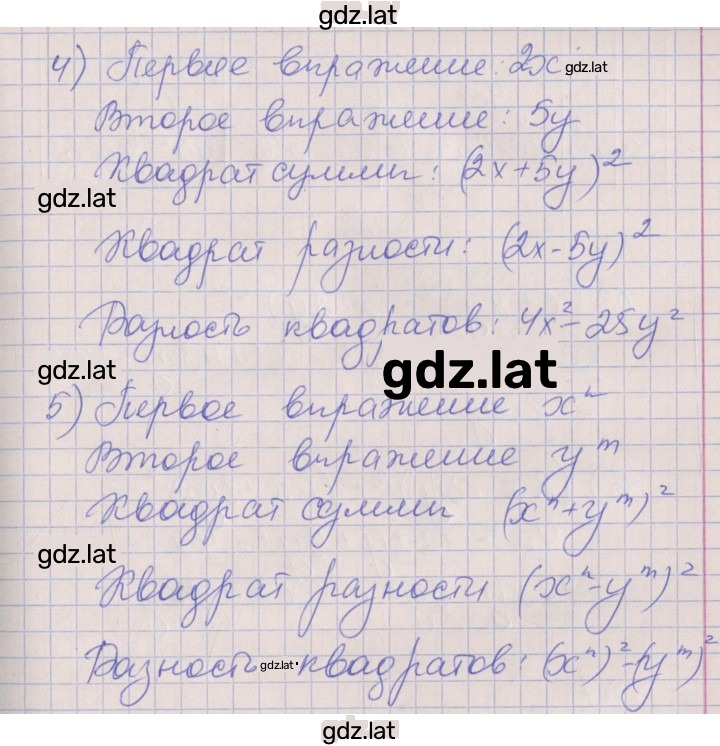 gdz.lat
4) Первое выражение: 2x gdz.lat
Второе выражение: 5y
Квадрат суммы: (2x+5y)²
gdz.lat
Квадрат разности: (2x-5y)²
Разность квадратов: 4x²-25y²
gdz.lat
gdz.lat
5) Первое выражение xⁿ
Второе выражение yᵐ
Квадрат суммы (xⁿ+yᵐ)²
gdz.lat
Квадрат разности (xⁿ-yᵐ)²
Разность gdz.lat квадратов: (xⁿ)²-(yᵐ)²
gdz.lat